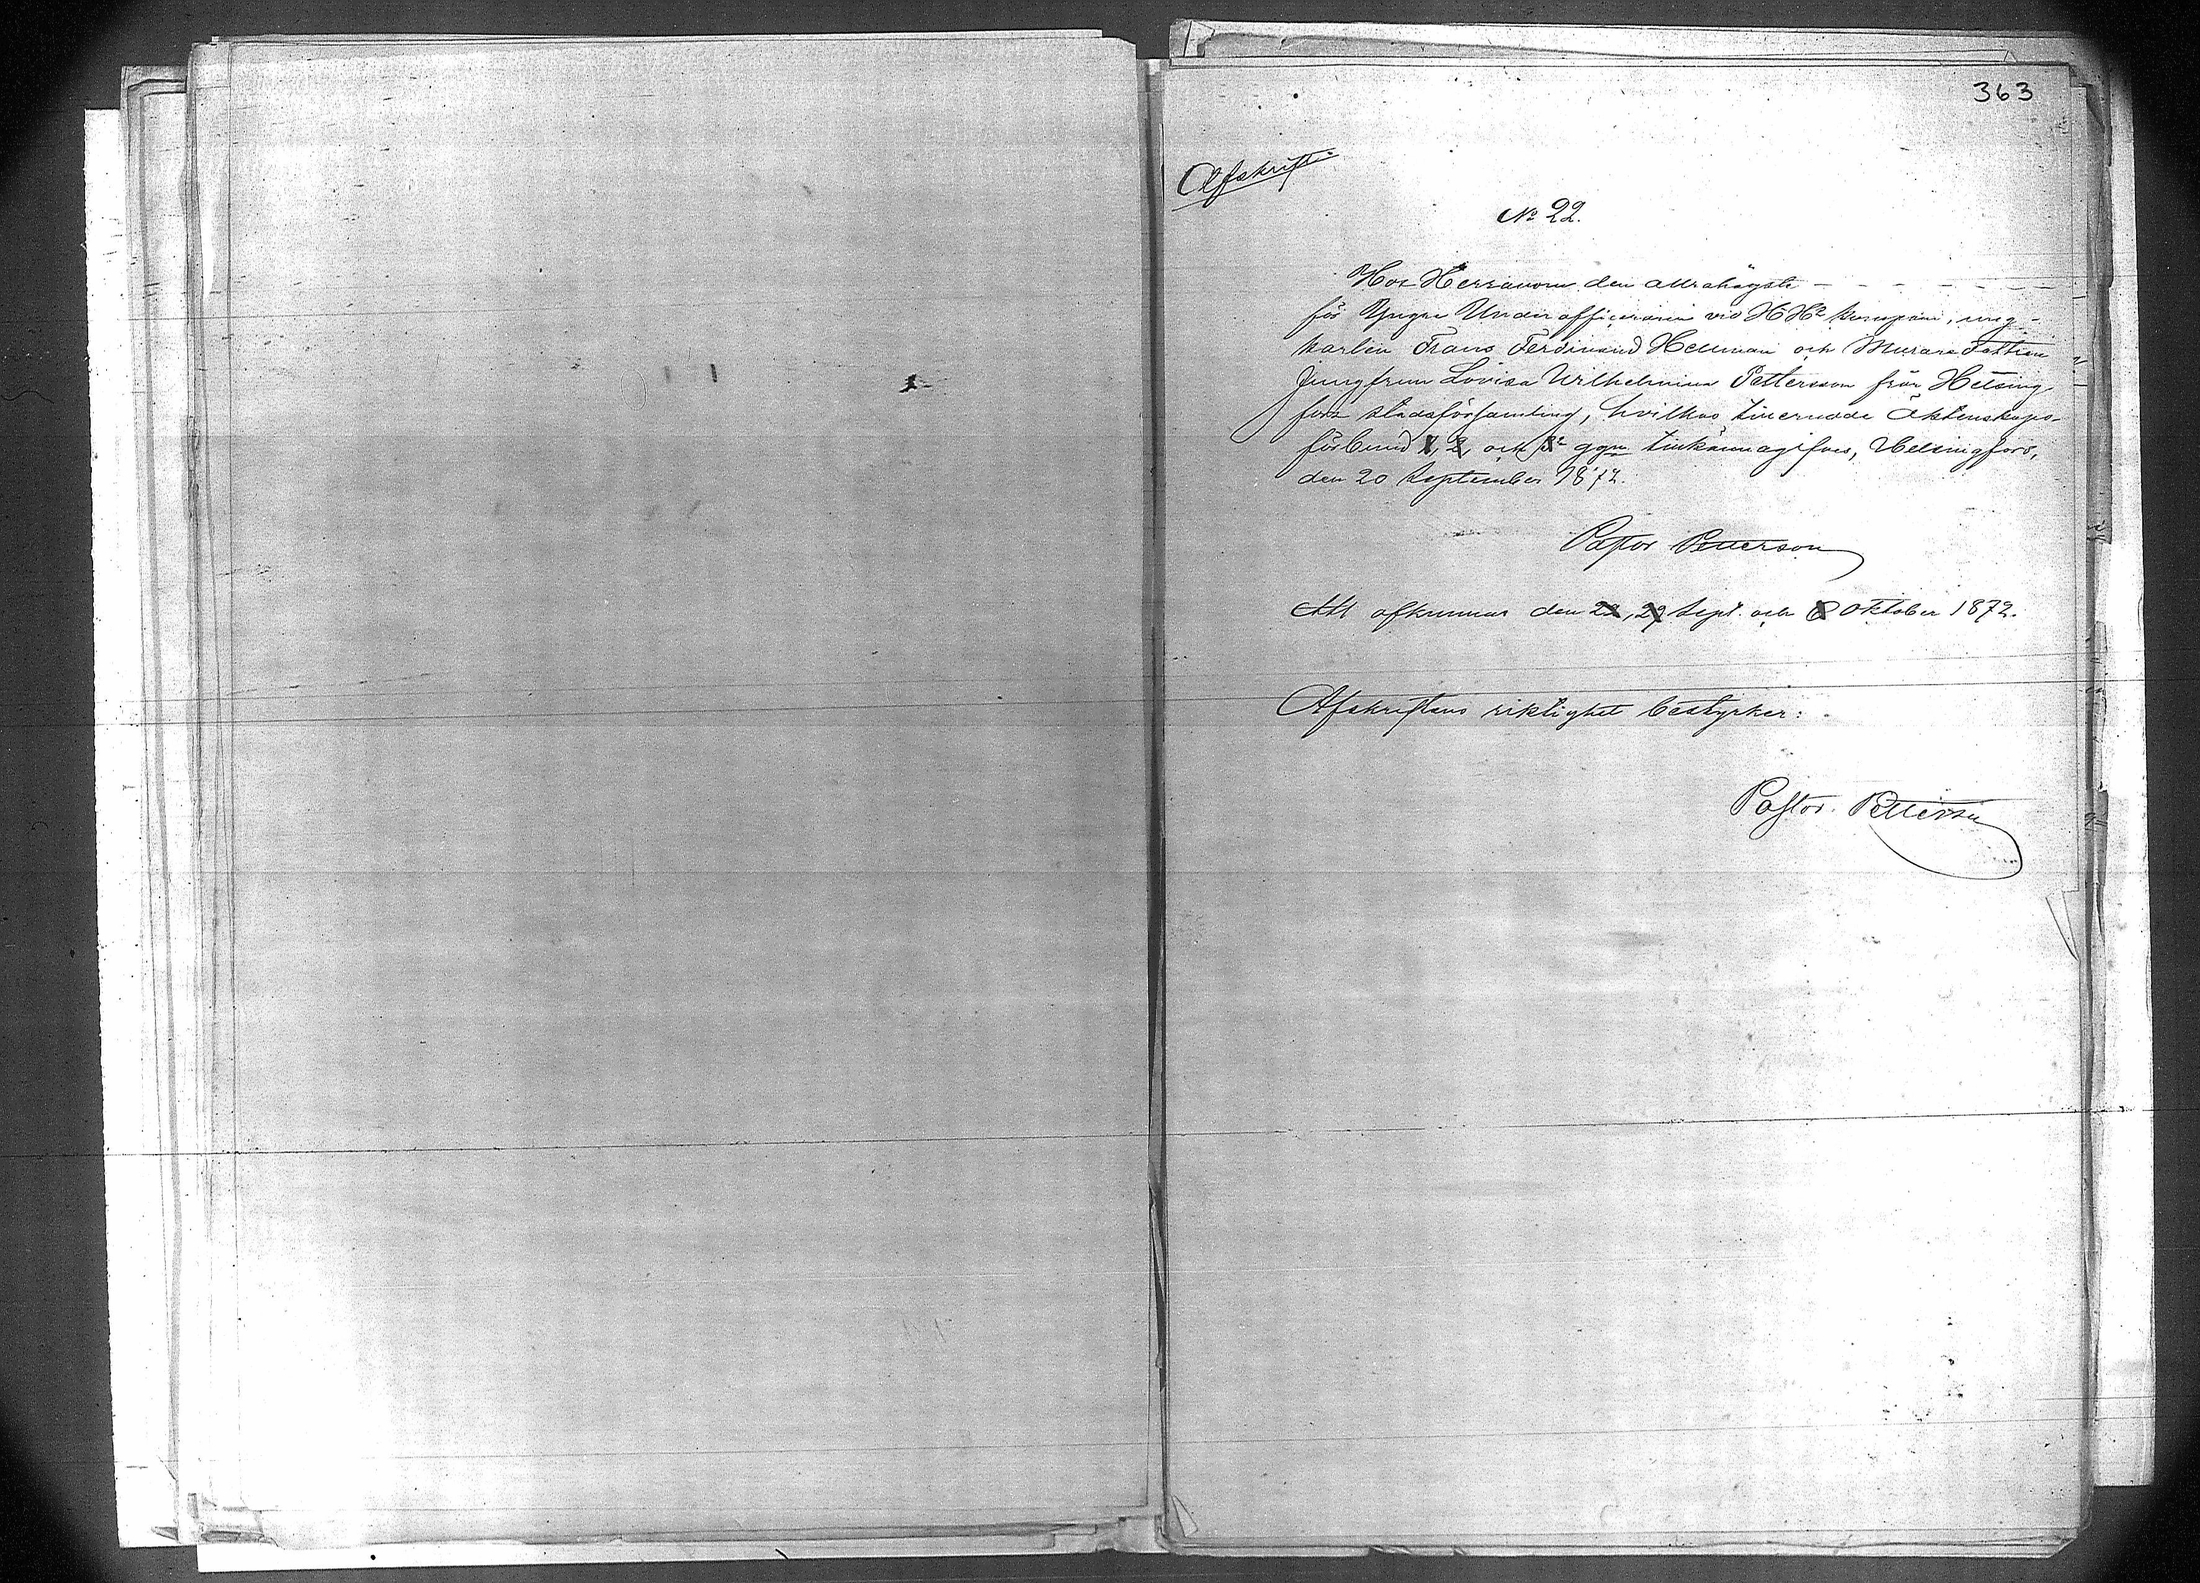 363
Afskrift.
No 22.
Hos Herranom den allrahögste - - - - - - -
för Yngre Underofficeraren vid HHs kompani, ung-
karlen Frans Ferdinand Hellman och Murare Dottren
Jungfrun Lovisa Wilhelmina Pettersson från Helsing-
fors stadsförsamling, hvilkas timernade Äktenskaps-
förbund 1, 2, och 3e ggn tinkännagifves, Helsingfors,
den 20 September 1872.
Pastor Petterson
Att afkunnas den 22, 29 Sept. och 6 Oktober 1872.
Afskriftens riktighet bestyrker:
Pastor. Petterson